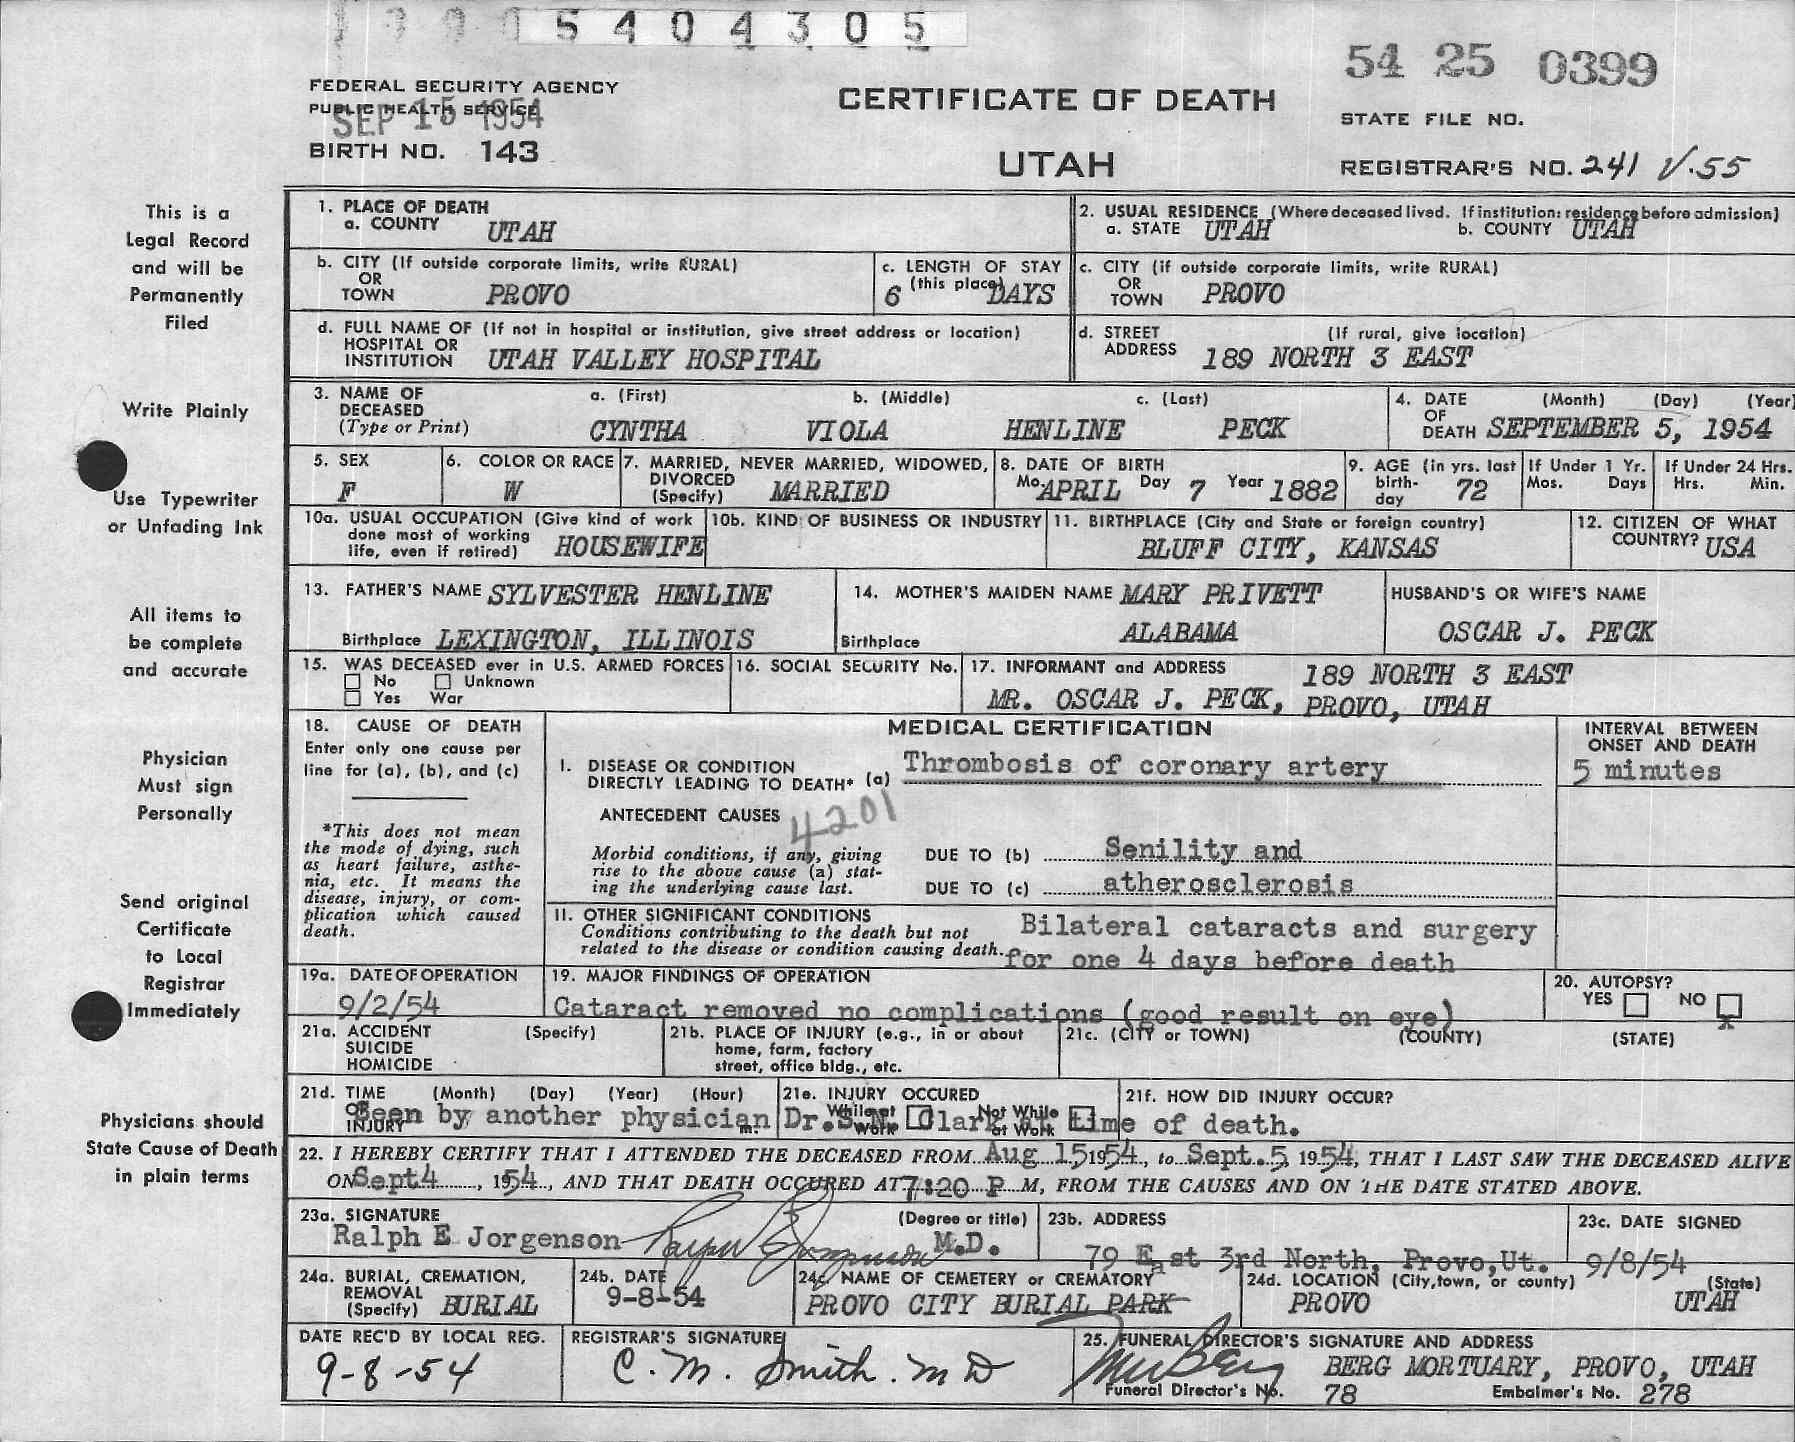 5404305
54 25 0399
FEDERAL SECURITY AGENCY
PUBLIC HEALTH SERVICE
SEP 15 1954
BIRTH NO. 143
CERTIFICATE OF DEATH
UTAH
STATE FILE NO.
REGISTRAR'S NO. 241 V.55
This is a
Legal Record
and will be
Permanently
Filed
Write Plainly
Use Typewriter
or Unfading Ink
All items to
be complete
and accurate
Physician
Must sign
Personally
Send original
Certificate
to Local
Registrar
Immediately
Physicians should
State Cause of Death
in plain terms
1. PLACE OF DEATH
a. COUNTY UTAH
2. USUAL RESIDENCE (Where deceased lived. If institution: residence before admission)
a. STATE UTAH b. COUNTY UTAH
b. CITY (If outside corporate limits, write RURAL)
OR
TOWN PROVO
c. LENGTH OF STAY
(this place)
6 DAYS
c. CITY (if outside corporate limits, write RURAL)
OR
TOWN PROVO
d. FULL NAME OF (If not in hospital or institution, give street address or location)
HOSPITAL OR
INSTITUTION UTAH VALLEY HOSPITAL
d. STREET (If rural, give location)
ADDRESS 189 NORTH 3 EAST
3. NAME OF DECEASED (Type or Print)
a. (First) b. (Middle) c. (Last)
CYNTHA VIOLA HENLINE PECK
4. DATE OF DEATH (Month) (Day) (Year)
SEPTEMBER 5, 1954
5. SEX
F
6. COLOR OR RACE
W
7. MARRIED, NEVER MARRIED, WIDOWED,
DIVORCED
(Specify) MARRIED
8. DATE OF BIRTH
Mo. APRIL Day 7 Year 1882
9. AGE (in yrs. last
birth-
day 72
If Under 1 Yr.
Mos. Days
If Under 24 Hrs.
Hrs. Min.
10a. USUAL OCCUPATION (Give kind of work
done most of working
life, even if retired) HOUSEWIFE
10b. KIND OF BUSINESS OR INDUSTRY
11. BIRTHPLACE (City and State or foreign country)
BLUFF CITY, KANSAS
12. CITIZEN OF WHAT
COUNTRY? USA
13. FATHER'S NAME SYLVESTER HENLINE
Birthplace LEXINGTON, ILLINOIS
14. MOTHER'S MAIDEN NAME MARY PRIVETT
Birthplace ALABAMA
HUSBAND'S OR WIFE'S NAME
OSCAR J. PECK
15. WAS DECEASED ever in U.S. ARMED FORCES
No Unknown
Yes War
16. SOCIAL SECURITY No.
17. INFORMANT and ADDRESS 189 NORTH 3 EAST
MR. OSCAR J. PECK, PROVO, UTAH
18. CAUSE OF DEATH
Enter only one cause per
line for (a), (b), and (c)
*This does not mean
the mode of dying, such
as heart failure, asthe-
nia, etc. It means the
disease, injury, or com-
plication which caused
death.
MEDICAL CERTIFICATION
INTERVAL BETWEEN
ONSET AND DEATH
I. DISEASE OR CONDITION
DIRECTLY LEADING TO DEATH* (a) Thrombosis of coronary artery
5 minutes
ANTECEDENT CAUSES
4201
Morbid conditions, if any, giving
rise to the above cause (a) stat-
ing the underlying cause last.
DUE TO (b) Senility and
DUE TO (c) atherosclerosis
II. OTHER SIGNIFICANT CONDITIONS
Conditions contributing to the death but not
related to the disease or condition causing death.
Bilateral cataracts and surgery
for one 4 days before death
19a. DATE OF OPERATION
9/2/54
19. MAJOR FINDINGS OF OPERATION
Cataract removed no complications (good result on eye)
20. AUTOPSY?
YES NO X
21a. ACCIDENT (Specify)
SUICIDE
HOMICIDE
21b. PLACE OF INJURY (e.g., in or about
home, farm, factory
street, office bldg., etc.
21c. (CITY or TOWN) (COUNTY) (STATE)
21d. TIME (Month) (Day) (Year) (Hour)
OF
INJURY m.
21e. INJURY OCCURED
While at Work Not While at Work
21f. HOW DID INJURY OCCUR?
Seen by another physician Dr. S.N. Clark at time of death.
22. I HEREBY CERTIFY THAT I ATTENDED THE DECEASED FROM Aug 15 1954, to Sept. 5, 1954, THAT I LAST SAW THE DECEASED ALIVE
ON Sept 4, 1954, AND THAT DEATH OCCURED AT 7:20 P M, FROM THE CAUSES AND ON THE DATE STATED ABOVE.
23a. SIGNATURE (Degree or title)
Ralph E Jorgenson Ralph E Jorgenson M.D.
23b. ADDRESS
79 East 3rd North, Provo, Ut.
23c. DATE SIGNED
9/8/54
24a. BURIAL, CREMATION,
REMOVAL
(Specify) BURIAL
24b. DATE
9-8-54
24c. NAME OF CEMETERY or CREMATORY
PROVO CITY BURIAL PARK
24d. LOCATION (City, town, or county) (State)
PROVO UTAH
DATE REC'D BY LOCAL REG.
9-8-54
REGISTRAR'S SIGNATURE
C. M. Smith. M D
25. FUNERAL DIRECTOR'S SIGNATURE AND ADDRESS
BERG MORTUARY, PROVO, UTAH
Funeral Director's No. 78 Embalmer's No. 278